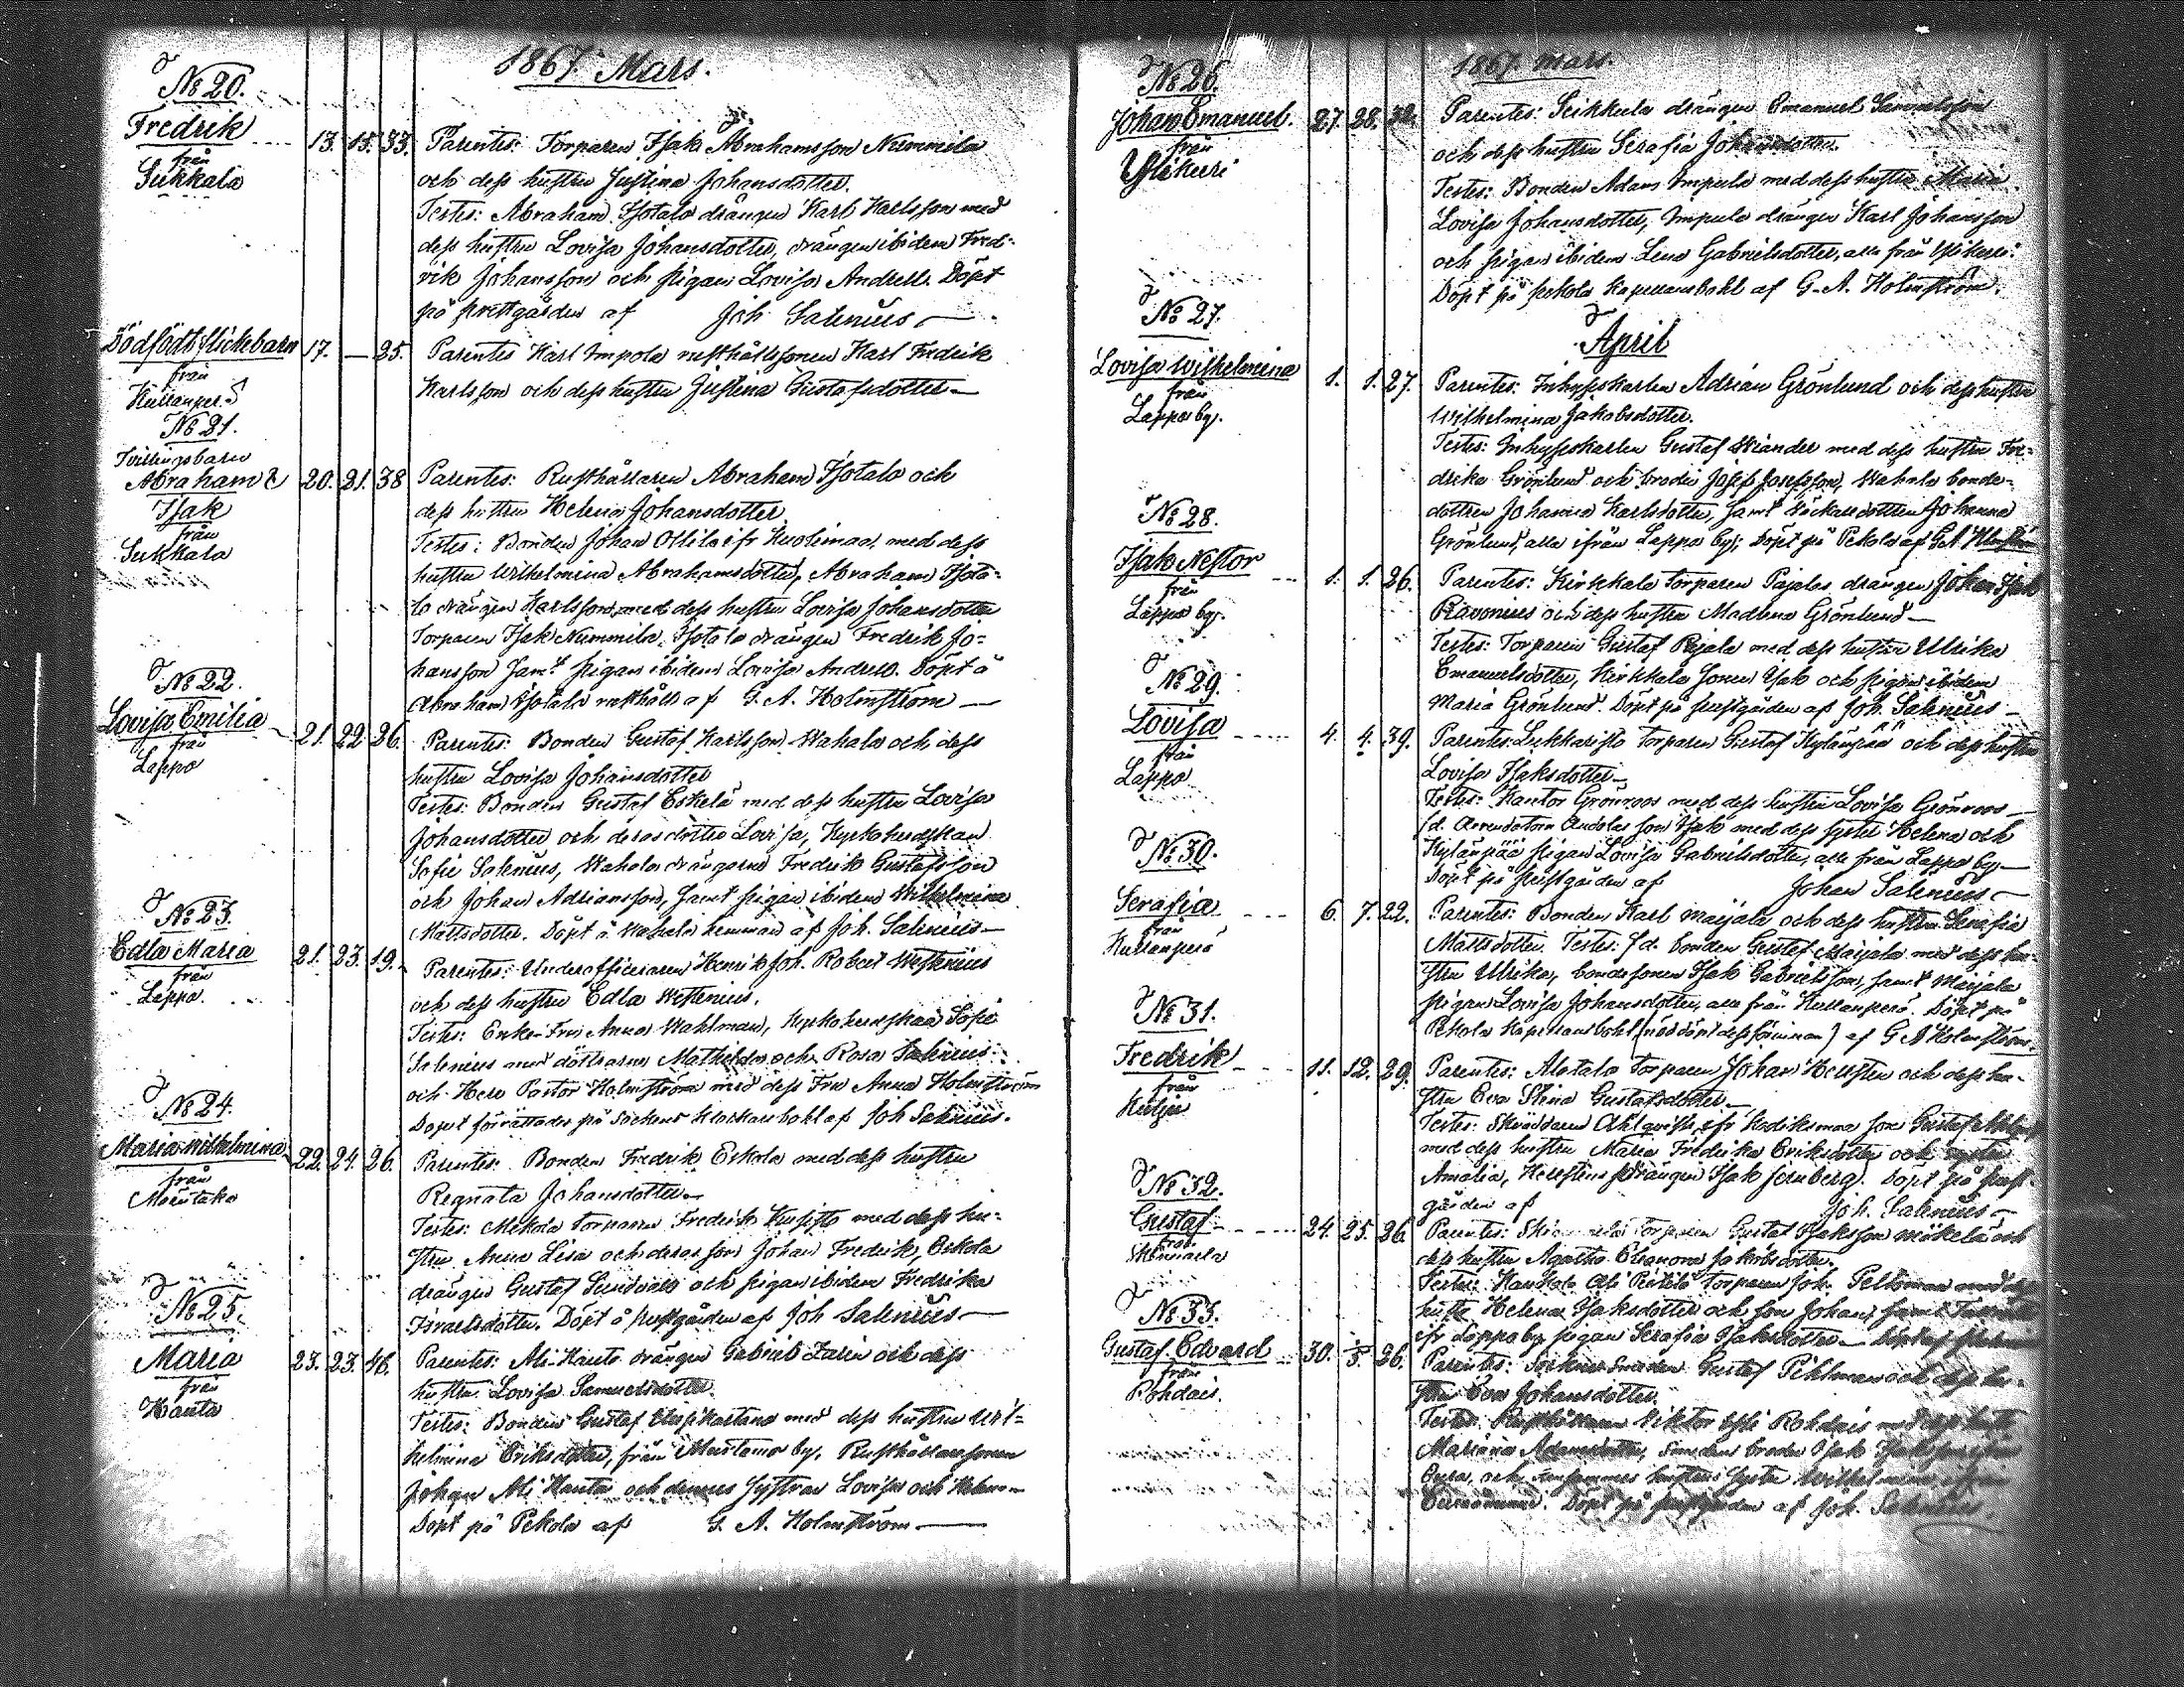 1867. Mars.
No 20.
Fredrik 13. 15. 33. Parentes: Torparen Isak Abrahamsson Nummila
från
Sukkala
och dess hustru Justina Johansdotter.
Testes: Abraham Isotalo drängen Karl Karlsson med
dess hustru Lovisa Johansdotter, drängen ibidem Fred-
rik Johansson och pigan Lovisa Andrell. Döpt
på prestgården af Joh Salenius
Dödfödt flickebarn 17. — 25. Parentes Karl Impola rusthållssonen Karl Fredrik
från
Kullanperä
Karlsson och dess hustru Justina Gustafsdotter
No 21.
Tvillingsbarn
Abraham & 20. 21. 38 Parentes: Rusthållaren Abraham Isotalo och
Isak
från
Sukkala
dess hustru Helena Johansdotter
Testes: Bonden Johan Ollila ifr Kuolimaa, med dess
hustru Wilhelmina Abrahamsdotter, Abraham Isota-
lo drängen Karlsson med dess hustru Lovisa Johansdotter
Torparen Isak Nummila, Isotalo drängen Fredrik Jo-
hansson samt pigan ibidem Lovisa Andrell. Döpt å
Abraham Isotalo rusthåll af G. A. Holmström
No 22.
Lovisa Emilia 21. 22 26. Parentes: Bonden Gustaf Karlsson Wahala och dess
från
Lappo
hustru Lovisa Johansdotter
Testes: Bonden Gustaf Eskela med dess hustru Lovisa
Johansdotter och deras dotter Lovisa, Kyrkoherdskan
Sofie Salenius, Wahala drängarne Fredrik Gustafsson
och Johan Adriansson, samt pigan ibidem Wilhelmina
Mattsdotter. Döpt å Wahala hemman af Joh. Salenius
No 23.
Edla Maria 21. 23. 19. Parentes: Underofficeraren Henrik Joh. Robert Westenius
från
Lappo.
och dess hustru Edla Westenius.
Testes: Enke-Fru Anna Wahlman, Kyrkoherdskan Sofie
Salenius med döttrarne Mathilda och Rosa Salenius
och Herr Pastor Holmström med dess Fru Anna Holmström
Dopet förrättades på Sockens klockarebohl af Joh Salenius.
No 24.
Maria Wilhelmina 22. 24. 26. Parentes: Bonden Fredrik Eskola med dess hustru
från
Regnata Johansdotter
Testes: Mekola torparen Fredrik Kusisto med dess hu-
stru Anna Lisa och deras son Johan Fredrik, Eskola
drängen Gustaf Sundvall och pigan ibidem Fredrika
Israelsdotter. Döpt å prestgården af Joh Salenius
No 25.
Maria 23. 23. 46. Parentes: Ali-Hauta drängen Gabriel Zarin och dess
från
Hauta
hustru Lovisa Samuelsdotter.
Testes: Bonden Gustaf med dess hustru Wil-
helmina Eriksdotter, från by, Rusthållaresonen
Johan Ali Hauta och dennes systrar Lovisa och
Döpt på Pekola af G. A. Holmström
1867. mars.
No 26.
Johan Emanuel. 27. 28. 32. Parentes: Seikkula drängen Emanuel Samuelsson
från
Yliskeri
och dess hustru Serafia Johansdotter
Testes: Bonden Adam Impula med dess hustru Maria
Lovisa Johansdotter, Impula drängen Karl Johansson
och pigan ibidem Lena Gabrielsdotter, alla från
Döpt på Pekola kapellansbohl af G. A. Holmström.
April
No 27.
Lovisa Wilhelmina 1. 1. 27. Parentes: Inhyseskarlen Adrian Grönlund och dess hustru
från
Lappo by.
Wilhelmina Jakobsdotter.
Testes: Inhyseskarlen Gustaf Wiander med dess hustru Fre-
drika Grönlund och broder Josef Josefsson, Wahala bonde-
dottren Johanna Karlsdotter, samt Johanna
Grönlund, alla ifrån Lappo by; Döpt på Pekola af G.A.
No 28.
Isak Nestor 1. 1. 26. Parentes: Kirkkala torparen Pajalas drängen Johan Isak
från
Lappo by.
Ravonius och dess hustru Madlena Grönlund
Testes: Torparen Gustaf Pajala med dess hustru Ulrika
Emanuelsdotter, Kirkkala sonen Isak och pigan ibidem
Maria Grönlund. Döpt på prestgården af Joh. Salenius
No 29.
Lovisa 4. 4. 39. Parentes: Lukkaristo torparen Gustaf Kylänpää och dess hustru
från
Lappo
Lovisa Isaksdotter
Testes: Kantor Grönroos med dess hustru Lovisa Grönroos
f.d. Arrendatorn son Isak med dess syster Helena och
Kylänpää pigan Lovisa Gabrielsdotter, alla från Lappo by
Döpt på prestgården af Johan Salenius
No 30.
Serafia 6. 7. 22. Parentes: Bonden Karl Maijala och dess hustru Serafia
från
Kullanperä
Mattsdotter. Testes: f.d. bonden Gustaf Maijala med dess hu-
stru Ulrika, bondesonen Isak Gabrielsson, samt Maijala
pigan Lovisa Johansdotter, alla från Kullanperä. Döpt på
Pekola Kapellansbohl (nöddöpt dessförinnan) af G A Holmström.
No 31.
Fredrik 11. 12. 29. Parentes: Alotalo torparen Johan och dess hu-
från
stru Eva Stina Gustafsdotter
Testes: Skräddaren Ahlqvist, ifr son Gustaf
med dess hustru Maria Fredrika Eriksdotter och syster
Amalia, drängen Isak Jernberg. Döpt på prest-
gården af Joh. Salenius
No 32.
Gustaf 24. 25. 26. Parentes: torparen Gustaf Isaksson Mäkelä och
från
dess hustru Agatha Eleanora Jakobsdotter.
Testes: torparen Joh.
hustr. Helena Isaksdotter och son Johan, samt
ifr Lappo by, pigan Serafia Isaksdotter
No 33.
Gustaf Edvard 30. 26. Parentes: Sockne Smeden Gustaf Pihlman och dess hu-
från
Rohdais.
stru Eva Johansdotter.
Testes: Rusthållaren Viktor Yli Rohdais med dess hustru
Mariana Adamsdotter, Smedens broder Isak
Döpt på prestgården af Joh. Salenius